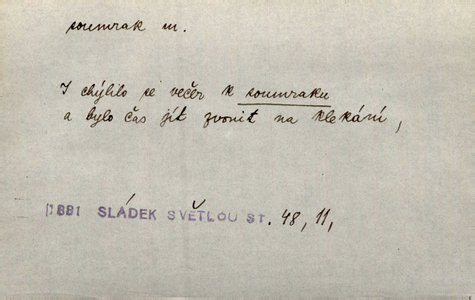 soumrak m.
I chýlilo se večer k soumraku
a bylo čas jít zvonit na klekání,
1881 SLÁDEK SVĚTLOU ST. 48, 11,